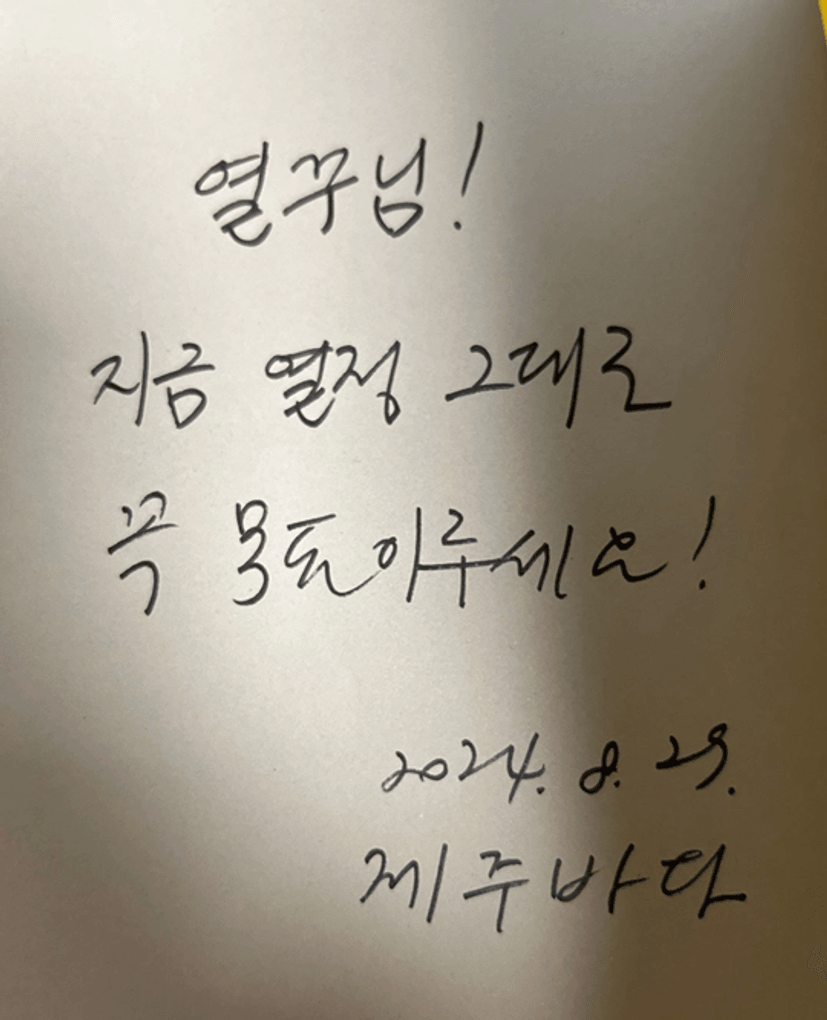 열꾸님!
지금 열정 그대로
꼭 목표이루세요!
2024. 8. 29.
제주바다